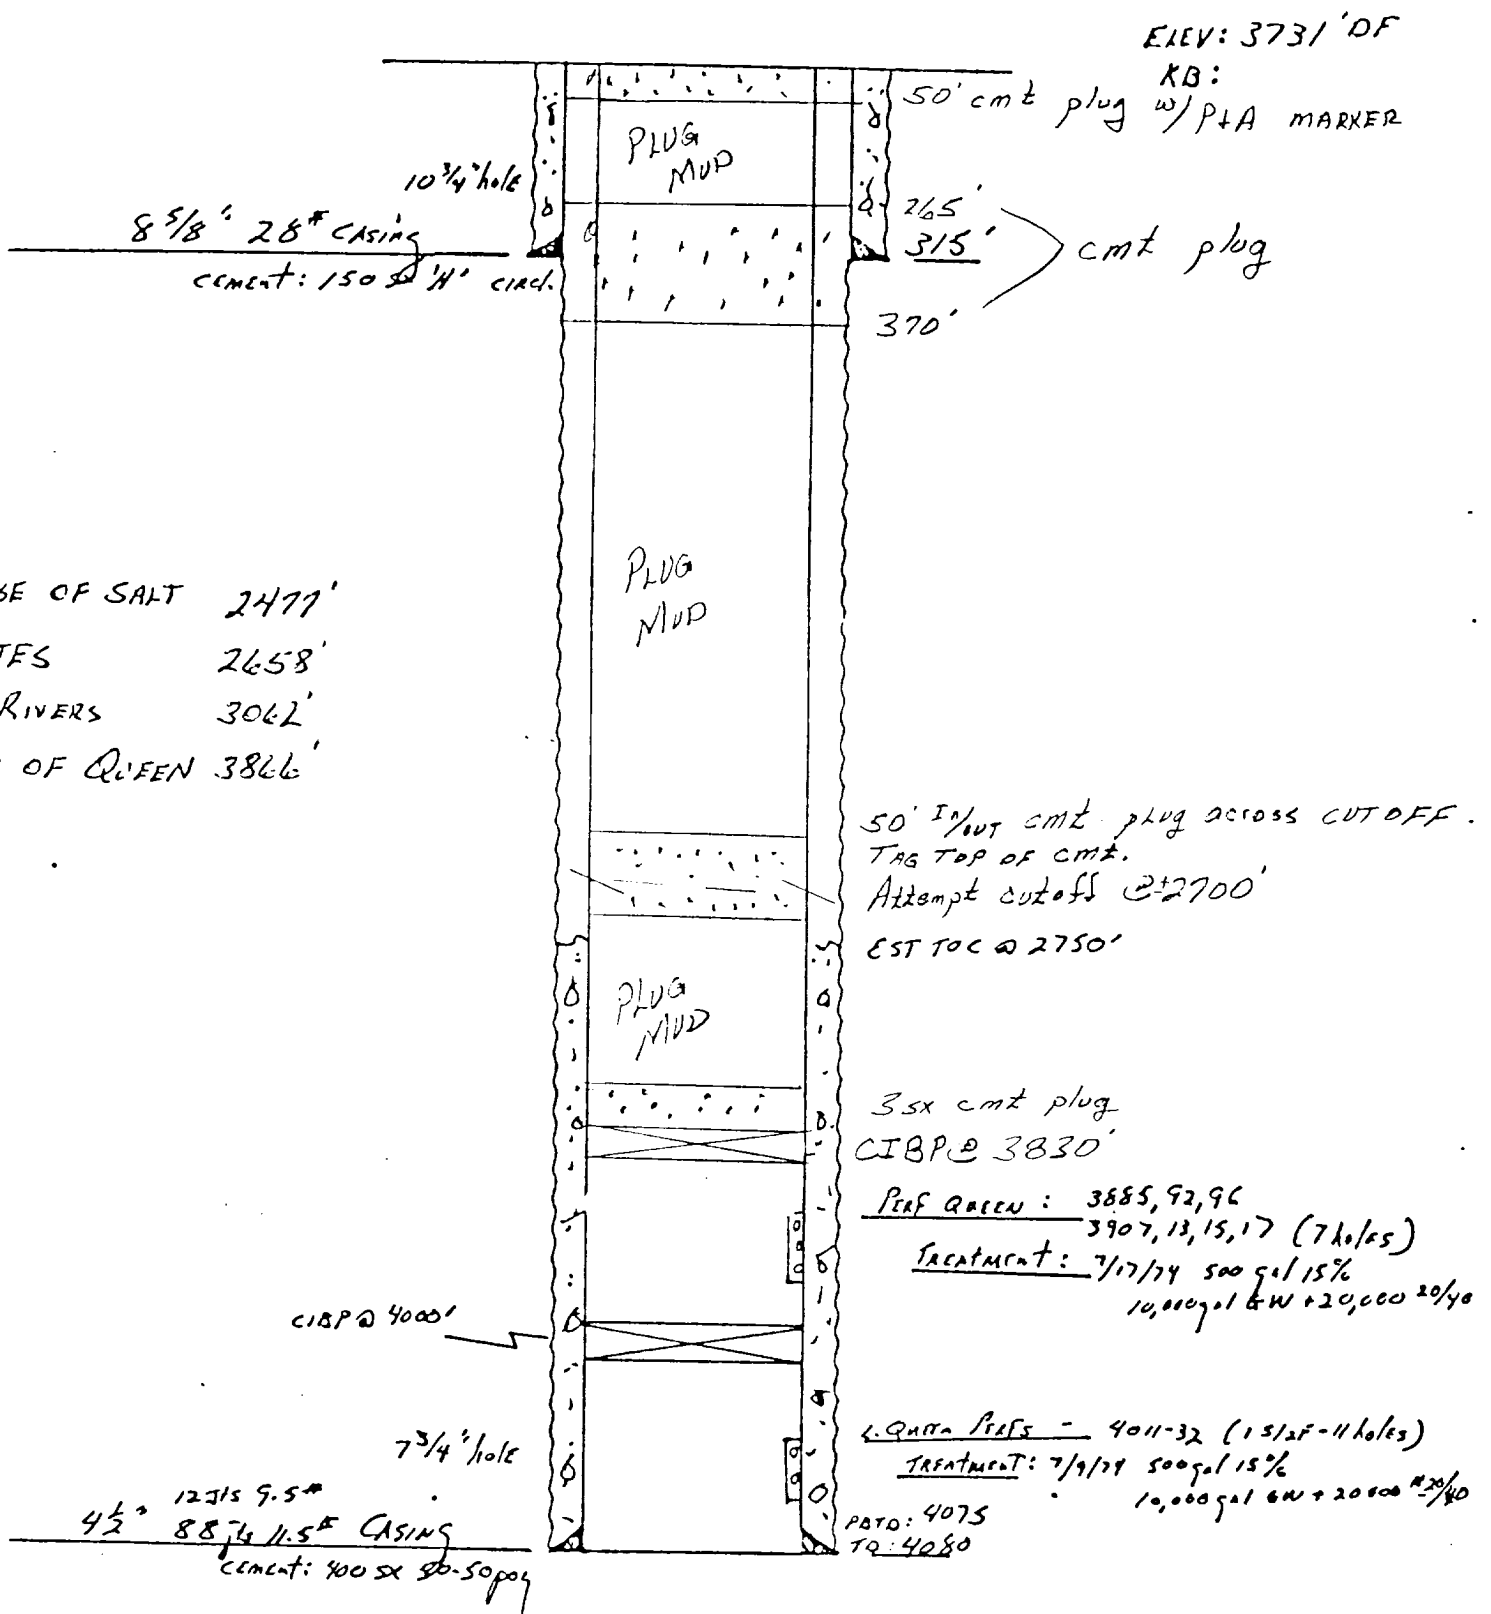 ELEV: 3731' DF
KB:
50' cmt plug w/ P+A MARKER
PLUG
MUD
10 3/4" hole
265'
8 5/8" 28# CASING
315'
cmt plug
cement: 150 sx 'H' circ.
370'
PLUG
MUD
SE OF SALT 2477'
TES 2658'
RIVERS 3062'
OF QUEEN 3866'
50' In/out cmt plug across CUTOFF.
TAG TOP OF cmt.
Attempt cutoff @±2700'
EST TOC @ 2750'
PLUG
MUD
3sx cmt plug
CIBP @ 3830'
PERF QUEEN: 3885, 92, 96
3907, 13, 15, 17 (7 holes)
TREATMENT: 7/17/74 500 gal 15%
10,000 gal GW + 20,000 20/40
CIBP @ 4000'
7 3/4" hole
L. QUEEN PERFS - 4011-32 (1 S/2F - 11 holes)
TREATMENT: 7/9/74 500 gal 15%
10,000 gal GW + 20000 # 20/40
12 Jts 9.5#
4 1/2" 88 jts 11.5# CASING
PBTD: 4075
TD: 4080
cement: 400 sx 50-50 poz